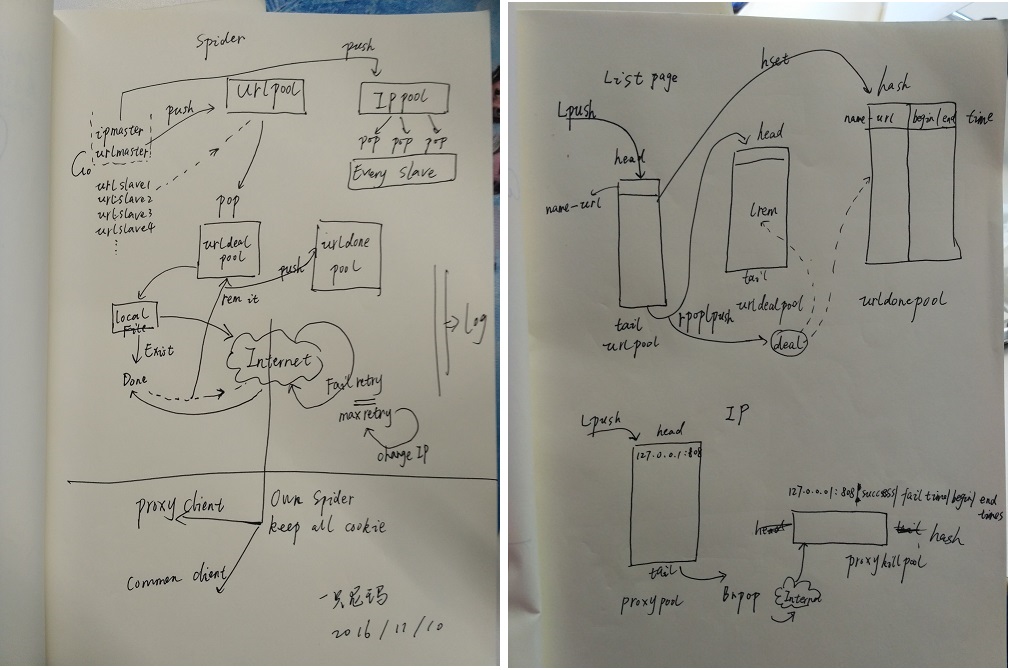 Spider
push
urlpool
IP pool
push
ipmaster
urlmaster
Go
pop pop pop
Every slave
urlslave1
urlslave2
urlslave3
urlslave4
pop
urldeal
pool
urldone
pool
push
rem it
local
File
Exist
Done
Internet
Fail retry
maxretry
change IP
Log
proxy client
Own Spider
keep all cookie
Common client
2016/11/10
List page
hset
hash
Lpush
name-url
begin/end
time
head
head
name-url
lrem
tail
urldealpool
urldonepool
tail
urlpool
rpoplpush
deal
IP
Lpush
head
127.0.0.1:808
127.0.0.01:808/success/fail time/begin/end
times
head
tail
hash
proxykillpool
tail
proxypool
Brpop
Internet